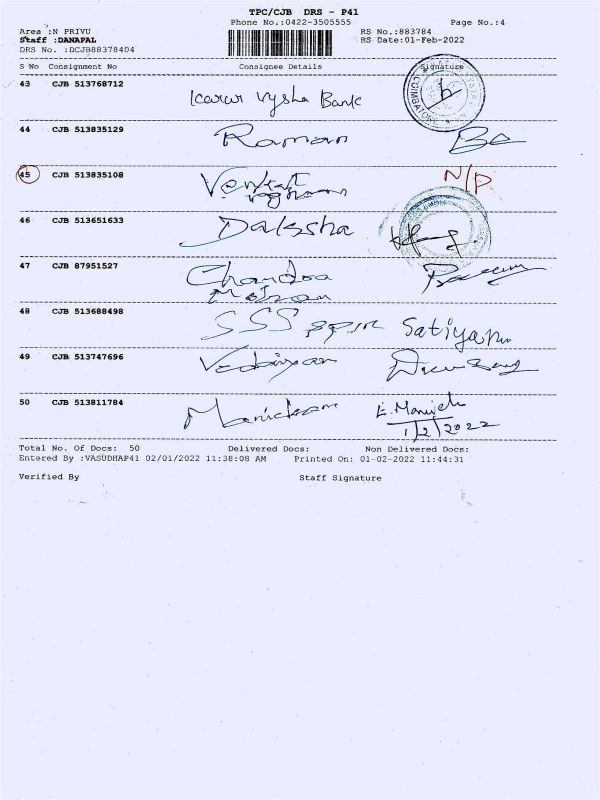 TPC/CJB DRS - P41
Phone No.:0422-3505555
Page No.:4
Area :N PRIVU
RS No.:883784
Staff :DANAPAL
RS Date:01-Feb-2022
DRS No. :DCJB88378404
S No Consignment No Consignee Details Signature
43 CJB 513768712 Karur Vysha Bank
COIMBATORE
44 CJB 513835129 Raman
45 CJB 513835108 Venkat N/P
46 CJB 513651633 Daksha
47 CJB 87951527 Chandra
Mohan
48 CJB 513688498 SSS Satiyam
49 CJB 513747696
50 CJB 513811784 Manickam E. Manick
1/2/2022
Total No. Of Docs: 50 Delivered Docs: Non Delivered Docs:
Entered By :VASUDHAP41 02/01/2022 11:38:08 AM Printed On: 01-02-2022 11:44:31
Verified By Staff Signature